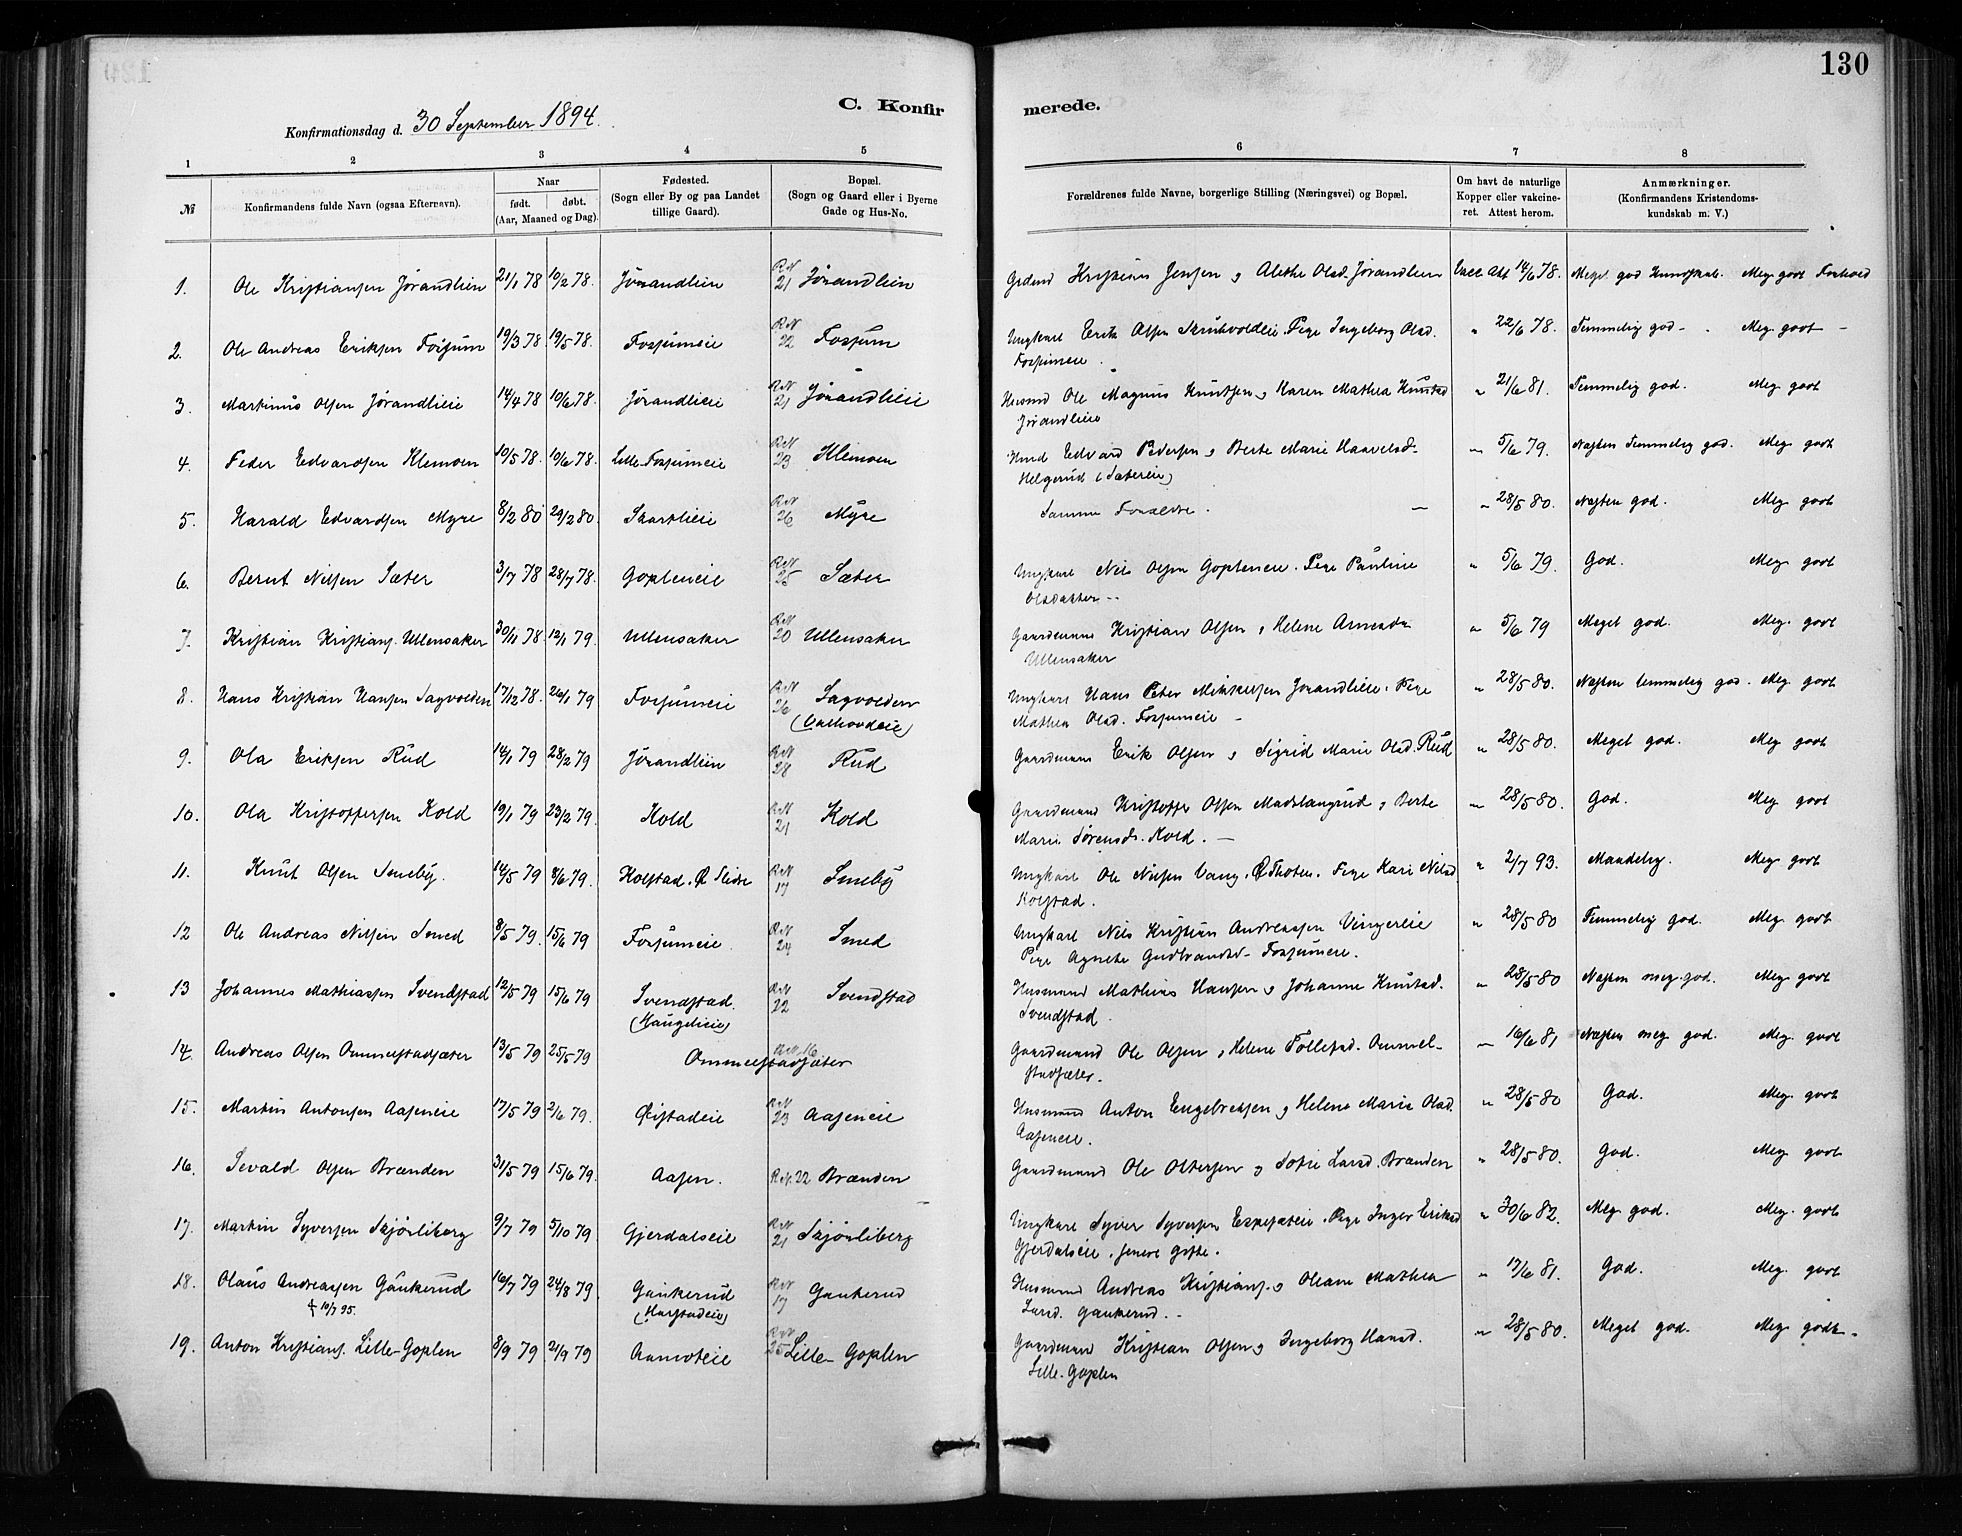 130
C. Konfirmerede.
Konfirmationsdag d. 30 September 1894.
1 2 3 4 5 6 7 8
№ Konfirmandens fulde Navn (ogsaa Efternavn). Naar født. døbt. (Aar, Maaned og Dag). Fødested. (Sogn eller By og paa Landet tillige Gaard). Bopæl. (Sogn og Gaard eller i Byerne Gade og Hus-No. Forældrenes fulde Navne, borgerlige Stilling (Næringsvei) og Bopæl. Om havt de naturlige Kopper eller vakcineret. Attest herom. Anmærkninger. (Konfirmandens Kristendomskundskab m. V.)
1. Ole Kristiansen Jørandlien 21/1 78 10/2 78. Jørandlien RN 21 Jørandlien Kristian Jensen og Alethe Olsd. Jørandlien Vacc. Att 14/6 78. Meget god Kundskab. Meg. godt Forhold
2. Ole Andreas Eriksen Fossum 19/3 78 19/5 78. Fossumeie RN 22 Fossum Ungkarl Erik Olsen Pige Ingeborg Olsd. " 22/6 78. Temmelig god - Meg. godt -
Fossumeie.
3. Martinus Olsen Jørandlieie 14/4 78 10/6 78. Jørandlieie RN 21 Jørandlieie Husmd Ole Magnus Knutsen og Karen Mathea Knutsd " 21/6 81. Temmelig god. Meg. godt
Jørandlieie
4. Peder Edvardsen Klemoen 10/5 78. 10/6 78. Lille-Fossumeie RN 23 Klemoen Husmd Edvard Pedersen og Berte Marie Haavelsd. " 5/6 79. Næsten Temmelig god. Meg. godt
Helgerud (Sætereie)
5. Harald Edvardsen Myre 8/2 80 29/2 80. Skartlieie RN 26 Myre Samme Forældre. — " 28/5 80. Næsten god. Meg. godt
6. Bernt Nilsen Sæter 3/7 78 28/7 78. Gopleneie RN 25 Sæter Ungkarl Nils Olsen Gopleneie. Pige Pauline " 5/6 79. God. Meg. godt
Olsdatter --
7. Kristian Kristians. Ullensaker 30/11 78 12/1 79. Ullensaker RN 20 Ullensaker Gaardmand Kristian Olsen og Helene Arnesdr " 5/6 79 Meget god. Meg. godt
Ullensaker
8. Hans Kristian Hansen Sagvolden 17/12 78. 26/1 79 Fossumeie RN 26 Sagvolden Ungkarl Hans Peter Mikkelsen Jørandlieie. Pige " 28/5 80. Næsten temmelig god. Meg. godt
Mathea Olsd. Fossumeie -
9. Ola Eriksen Rud 14/1 79 28/2 79 Jørandlien RN 28 Rud Gaardmand Erik Olsen og Sigrid Marie Olsd. Rud " 28/5 80. Meget god. Meg. godt
10. Ola Kristoffersen Kold 19/1 79 23/2 79. Kold RN 21 Kold Gaardmand Kristoffer Olsen Madslangrud og Berte " 28/5 80. God. Meg. godt
Marie Sørensd. Kold. —
11. Knut Olsen Smeby. 14/5 79 8/6 79. Kolstad. Ø. Slidre RN 17 Smeby Ungkarl Ole Nilsen Vang, Ø Thoten. Pige Kari Nilsd " 2/7 93. Maadelig. Meg. godt
Kolstad.
12 Ole Andreas Nilsen Smed 8/5 79. 15/6 79 Fossumeie. RN 24 Smed Ungkarl Nils Kristian Andreassen Vingerlie " 28/5 80 Temmelig god. Meg. godt
Pige Agnethe Gudbrandsd- Fossumeie.
13 Johannes Mathiassen Svendstad 12/5 79 15/6 79 Svendstad. (Haugelieie) RN 22 Svendstad Husmand Mathias Hansen og Johanne Knutsd. " 28/5 80 Næsten meg. god. Meg. godt
Svendstad.
14. Andreas Olsen Ommelstadsæter 13/5 79 25/5 79 Ommelstadsæter RN. 16 Gaardmand Ole Olsen og Helene Tollefsd. Ommelstadsæter. " 16/6 81 Næsten meg god. Meg. godt
15. Martin Antonsen Aaseneie 17/5 79 2/6 79. Øistadeie RN 23 Aaseneie Husmand Anton Engebretsen og Helene Marie Olsd. " 28/5 80 God. Meg. godt
Aaseneie.
16. Sevald Olsen Brænden 31/5 79 15/6 79. Aasen. RN. 22 Brænden Gaardmand Ole Olsen og Sofie Larsd. Brænden " 28/5 80. God. Meg. godt
17. Martin Syversen Skjønliberg 9/7 79 5/10 79 Gjerdalseie RN 21 Skjønliberg Ungkarl Syver Syversen Pige Inger Eriksd " 30/6 82. Meg. god. Meg. godt
Gjerdalseie, senere gifte.
18. Olaus Andreassen Gaukerud 16/7 79 24/8 79 Gaukerud (Harstadeie) RN 17 Gaukerud Husmand Andreas Kristians. og Oleane Mathea " 17/6 81. God. Meg. godt
† 10/7 95. Larsd. Gaukerud. -
19. Anton Kristians. Lille-Goplen 8/9 79 21/9 79 Aamoteie RN 25 Lille-Goplen Gaardmand Kristian Olsen og Ingeborg Hansd. " 28/5 80. Meget god. Meg. godt.
Lille-Goplen